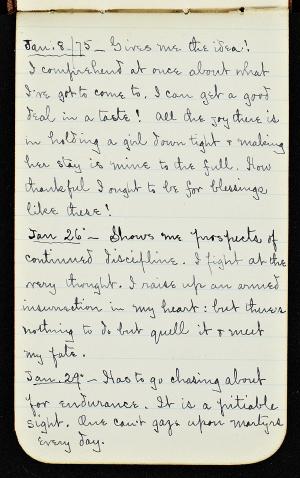 Jan. 8/75 – Gives me the idea!
I comprehend at once about what
I've got to come to. I can get a good
deal in a taste! All the joy there is
in holding a girl down tight & making
her stay is mine to the full. How
thankful I ought to be for blessings
like these!
Jan 26 – Shows me prospects of
continued discipline. I fight at the
very thought. I raise up an armed
insurrection in my heart: but there's
nothing to do but quell it & meet
my fate.
Jan. 29 – Has to go chasing about
for endurance. It is a pitiable
sight. One can't gaze upon martyrs
every day.